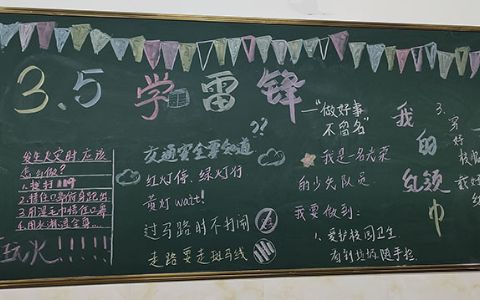 3.5 学雷锋
发生火灾时应该
怎么做?
1.拨打119
2.捂住口鼻俯身跑出
3.用湿毛巾捂住口鼻
4.用水淋湿全身...
玩火!!!!!!
交通安全要知道
??
红灯停、绿灯行
黄灯wait!
过马路时不打闹
走路要走斑马线
—“做好事
不留名”
我是一名光荣
的少先队员
我要做到:
1、爱护校园卫生
看到垃圾随手捡
我的红领巾
3.
穿好
校服
戴好
红